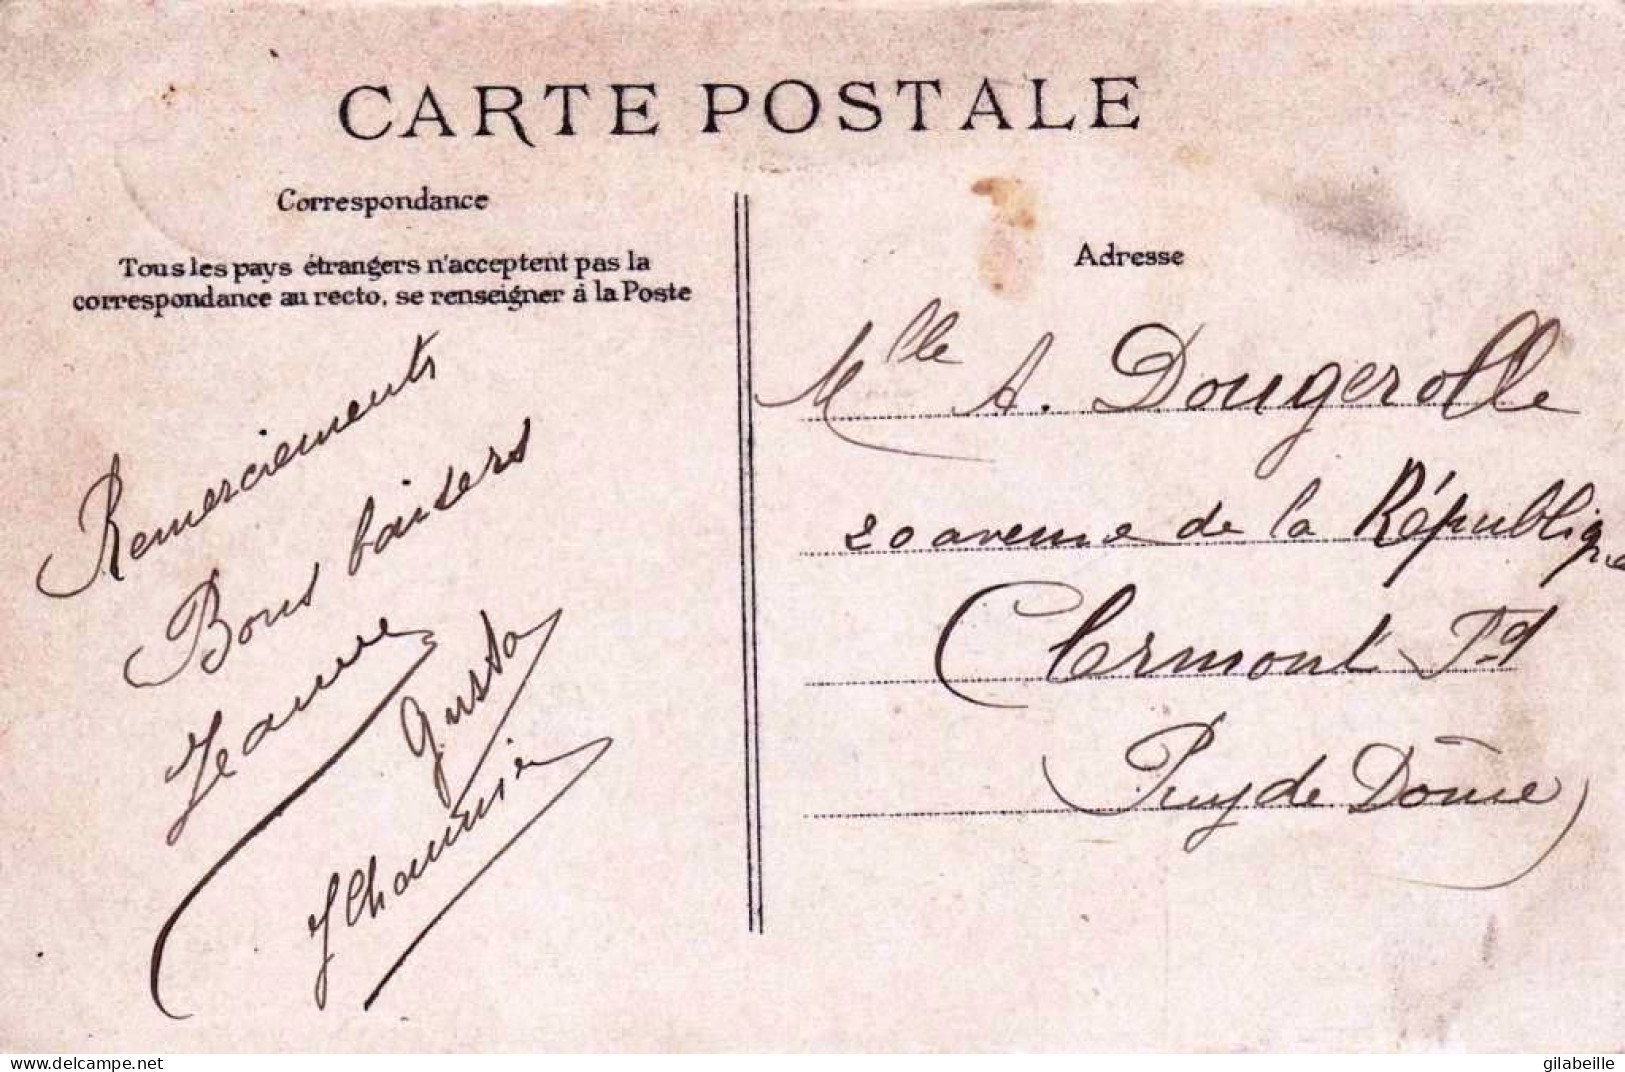 CARTE POSTALE
Correspondance
Tous les pays étrangers n'acceptent pas la
correspondance au recto, se renseigner à la Poste
Remerciements
Bons baisers
Jeanne
Gusta
Adresse
Mlle A. Dougerolle
20 avenue de la République
Clermont Fd
(Puy de Dôme)
delcampe.net
gilabeille